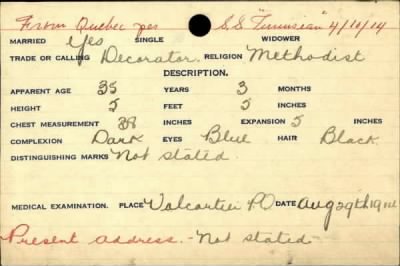 From Quebec per S.S. "Tunisian" 4/10/14
MARRIED Yes SINGLE WIDOWER
TRADE OR CALLING Decorator. RELIGION Methodist
DESCRIPTION.
APPARENT AGE 35 YEARS 3 MONTHS
HEIGHT 5 FEET 5 INCHES
CHEST MEASUREMENT 38 INCHES EXPANSION 5 INCHES
COMPLEXION Dark EYES Blue HAIR Black
DISTINGUISHING MARKS Not stated.
MEDICAL EXAMINATION. PLACE Valcartier PQ DATE Aug 29th 1914
Present address. - Not stated -